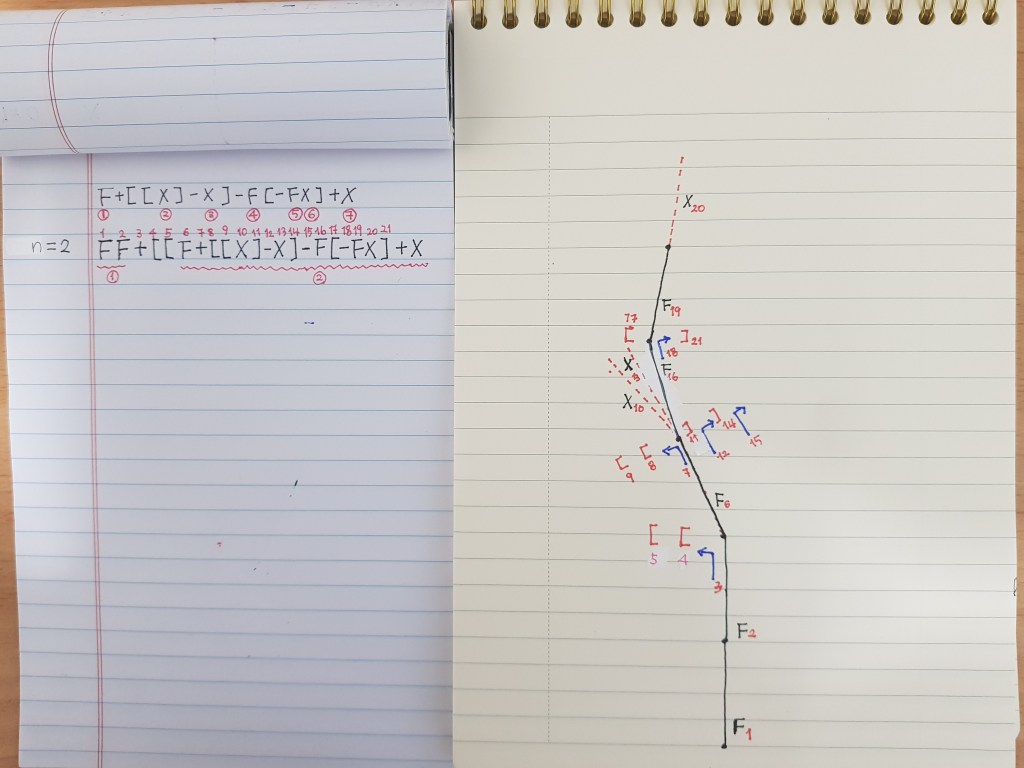 F+[[X]-X]-F[-FX]+X
① ② ③ ④ ⑤ ⑥ ⑦
1 2 3 4 5 6 7 8 9 10 11 12 13 14 15 16 17 18 19 20 21
n=2 FF+[[F+[[X]-X]-F[-FX]+X
① ②
X20
F19
17
[ ]21
18
X
F16
X10
]14
]11
15
12
[
8
[
9
7
F6
[ [
5 4
3
F2
F1